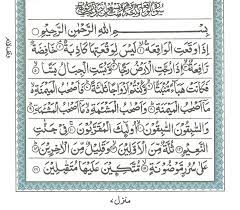 بِسْمِ اللّٰهِ الرَّحْمٰنِ الرَّحِيْمِ
اِذَا وَقَعَتِ الْوَاقِعَةُ لَيْسَ لِوَقْعَتِهَا كَاذِبَةٌ خَافِضَةٌ
رَّافِعَةٌ اِذَا رُجَّتِ الْاَرْضُ رَجًّا وَّبُسَّتِ الْجِبَالُ بَسًّا
فَكَانَتْ هَبَآءً مُّنْۢبَثًّا وَّكُنْتُمْ اَزْوَاجًا ثَلٰثَةً فَاَصْحٰبُ الْمَيْمَنَةِ
مَآ اَصْحٰبُ الْمَيْمَنَةِ وَاَصْحٰبُ الْمَشْئَمَةِ مَآ اَصْحٰبُ الْمَشْئَمَةِ
وَالسّٰبِقُوْنَ السّٰبِقُوْنَ اُولٰٓئِكَ الْمُقَرَّبُوْنَ فِيْ جَنّٰتِ
النَّعِيْمِ ثُلَّةٌ مِّنَ الْاَوَّلِيْنَ وَقَلِيْلٌ مِّنَ الْاٰخِرِيْنَ
عَلٰى سُرُرٍ مَّوْضُوْنَةٍ مُّتَّكِئِيْنَ عَلَيْهَا مُتَقٰبِلِيْنَ
منزل ٧